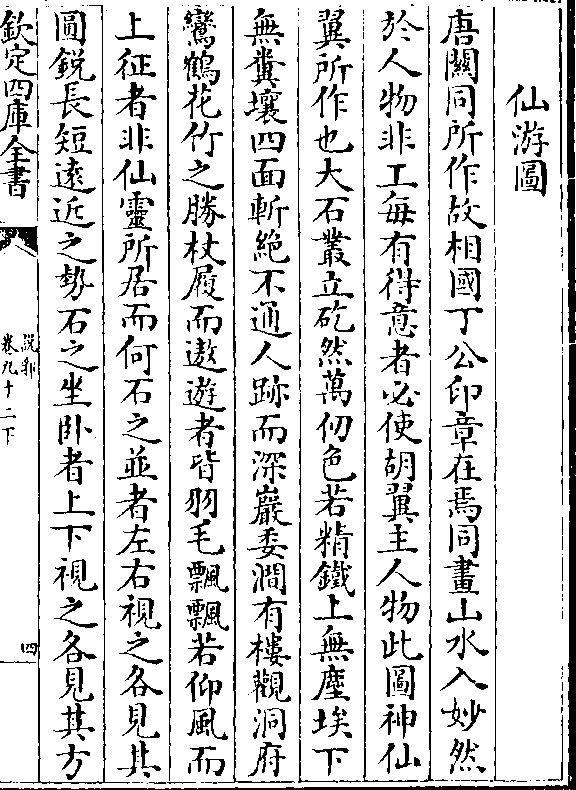 仙游圖
唐關同所作故相國丁公印章在焉同畫山水入妙然
於人物非工每有得意者必使胡翼主人物此圖神仙
翼所作也大石叢立矻然萬仞色若精鐵上無塵埃下
無糞壤四面斬絶不通人跡而深巖委澗有樓觀洞府
鸞鶴花竹之勝杖履而遨遊者皆羽毛飄飄若仰風而
上征者非仙靈所居而何石之並者左右視之各見其
圓鋭長短遠近之勢石之坐卧者上下視之各見其方
欽定四庫全書
說郛
卷九十二下
四